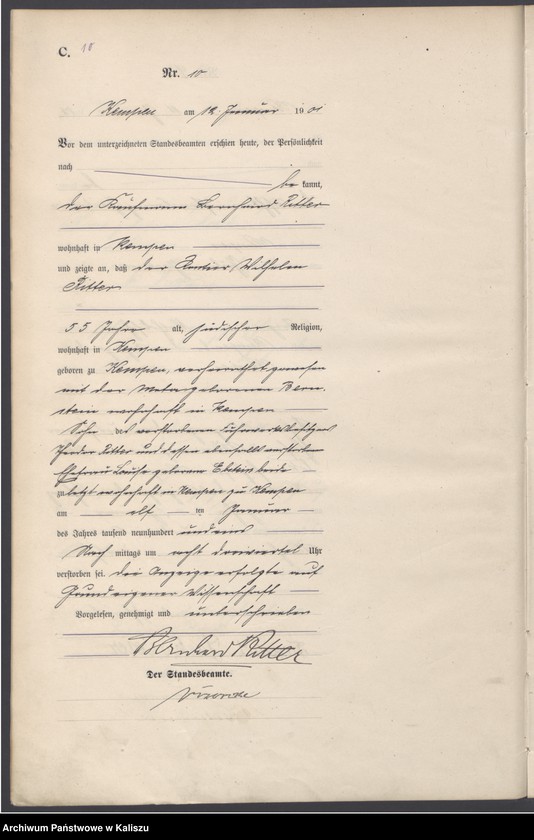 C. 18
Nr. 10
Kempen am 12. Januar 1901
Vor dem unterzeichneten Standesbeamten erschien heute, der Persönlichkeit
nach
be kannt,
der Kaufmann Bernhard Ritter
wohnhaft in Kempen
und zeigte an, daß der Rentier Wilhelm
Ritter
55 Jahre alt, jüdischer Religion,
wohnhaft in Kempen
geboren zu Kempen, verheirathet gewesen
mit der geborenen Bern-
stein wohnhaft in Kempen
Sohn des verstorbenen Fuhrwerksbesitzers
Ritter und dessen ebenfalls verstorbenen
Ehefrau Louise geborene beide
zuletzt wohnhaft in Kempen zu Kempen
am elf ten Januar
des Jahres tausend neunhundert und eins
Nach mittags um acht dreiviertel Uhr
verstorben sei. Die Anzeige erfolgte auf
Grund eigener Wissenschaft
Vorgelesen, genehmigt und unterschrieben
Bernhard Ritter
Der Standesbeamte.
Archiwum Państwowe w Kaliszu